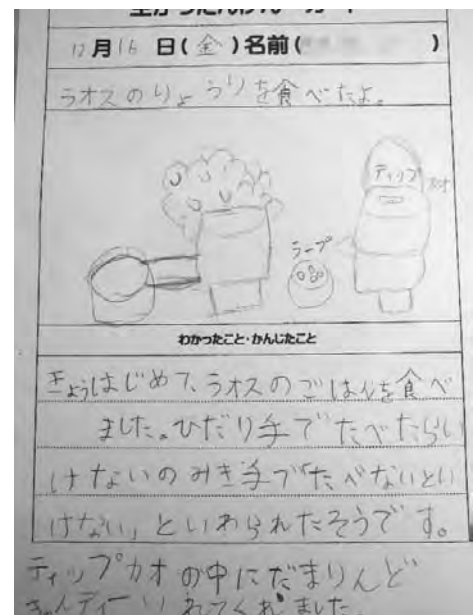 12月16日(金)名前( )
ラオスのりょうりを食べたよ。
ティップ
カオ
ラープ
わかったこと・かんじたこと
きょうはじめて、ラオスのごはんを食べ
ました。ひだり手でたべたらい
けないのみき手でたべないとい
けない」といわられたそうです。
ティップカオの中にだまりんど
きゃんディーいれてくれました。